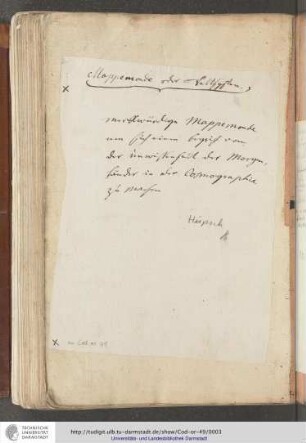 Mappemonde der
merkwürdige Mappemonde
um sich einen begrif von
der unwissenheit der Morgen
länder in der Cosmographie
zu machen
Hüpsch
TECHNISCHE
UNIVERSITÄT
DARMSTADT
http://tudigit.ulb.tu-darmstadt.de/show/Cod-or-49/0003
Universitäts- und Landesbibliothek Darmstadt